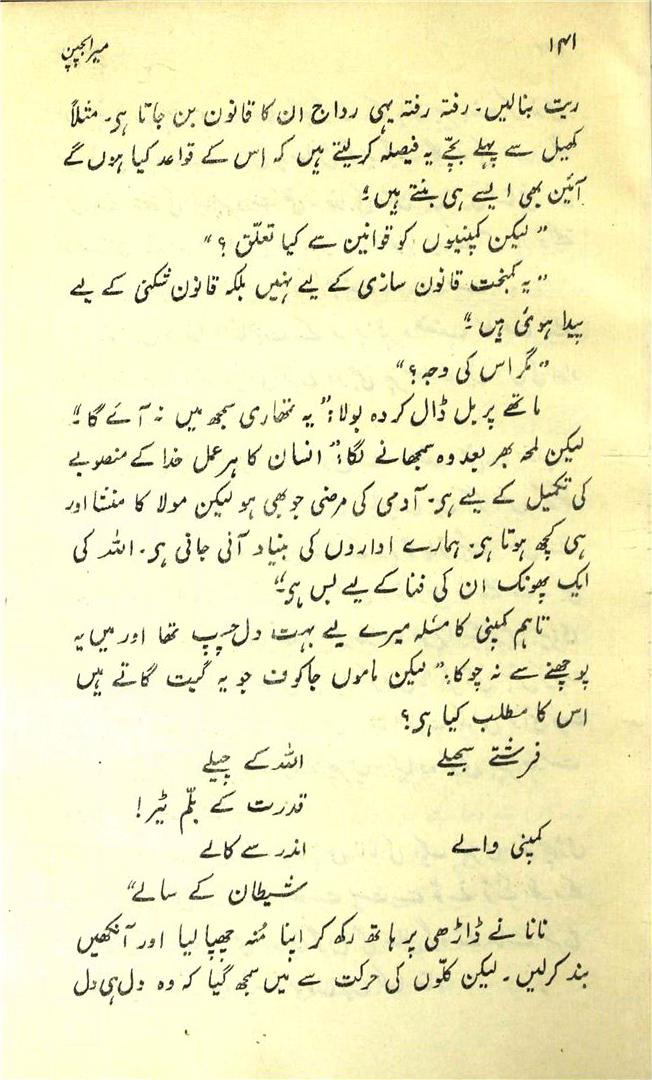 ۱۴۱ میرا بچپن
ریت بنالیں۔ رفتہ رفتہ یہی رواج ان کا قانون بن جاتا ہی۔ مثلاً
کھیل سے پہلے بچّے یہ فیصلہ کرلیتے ہیں کہ اس کے قواعد کیا ہوں گے
آئین بھی ایسے ہی بنتے ہیں۔"
"لیکن کمپنیوں کو قوانین سے کیا تعلّق ؟"
"یہ کمبخت قانون سازی کے لیے نہیں بلکہ قانون شکنی کے لیے
پیدا ہوئی ہیں۔"
"مگر اس کی وجہ؟"
ماتھے پر بل ڈال کر وہ بولا: "یہ تمھاری سمجھ میں نہ آئے گا۔"
لیکن لمحہ بھر بعد وہ سمجھانے لگا: "انسان کا ہر عمل خدا کے منصوبے
کی تکمیل کے لیے ہی۔ آدمی کی مرضی جو بھی ہو لیکن مولا کا منشا اور
ہی کچھ ہوتا ہی۔ ہمارے اداروں کی بنیاد آنی جانی ہی۔ اللہ کی
ایک پھونک ان کی فنا کے لیے بس ہی۔"
تاہم کمپنی کا مسٔلہ میرے لیے بہت دل چسپ تھا اور میں یہ
پوچھنے سے نہ چوکا: "لیکن ماموں جاکوف جو یہ گیت گاتے ہیں
اس کا مطلب کیا ہی؟
فرشتے سجیلے اللہ کے چیلے
قدرت کے بلّم ٹیر!
کمپنی والے اندر سے کالے
شیطان کے سالے"
نانا نے ڈاڑھی پر ہاتھ رکھ کر اپنا مُنہ چھپا لیا اور آنکھیں
بند کرلیں۔ لیکن کلّوں کی حرکت سے میں سمجھ گیا کہ وہ دل ہی دل